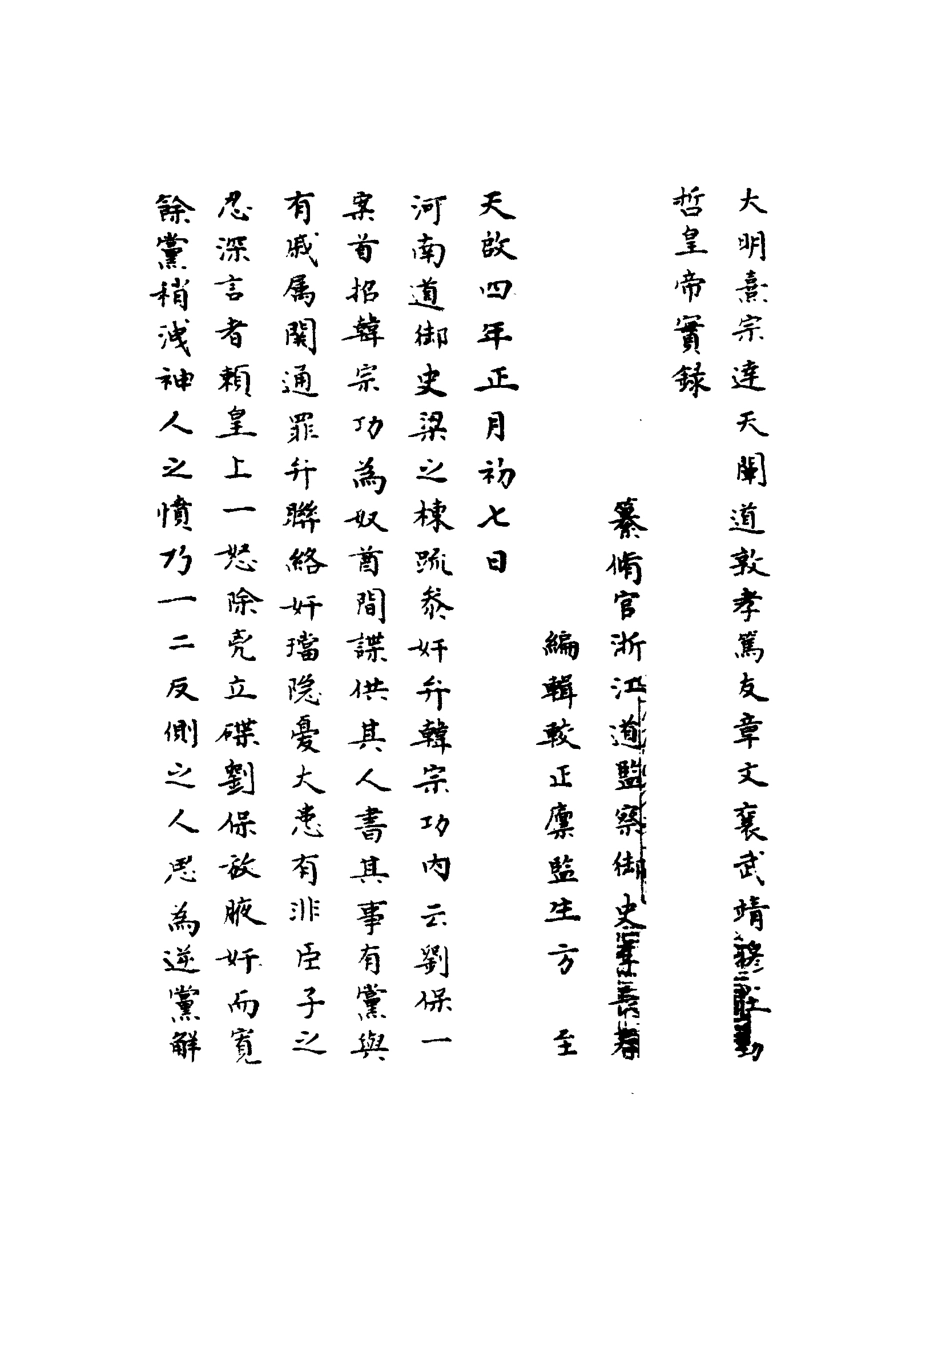 大明熹宗達天闡道敦孝篤友章文襄武靖穆莊勤
哲皇帝實録
纂脩官浙江道監察御史李長春
編輯較正廪監生方 至
天啟四年正月初七日
河南道御史梁之棟疏叅奸弁韓宗功内云劉保一
案首招韓宗功為奴酋間諜供其人書其事有黨與
有戚属関通罪弁聯絡奸璫隐憂大患有非臣子之
忍深言者頼皇上一怒除兇立磔劉保放腋奸而寛
餘黨稍洩神人之憤乃一二反側之人思為逆黨觧